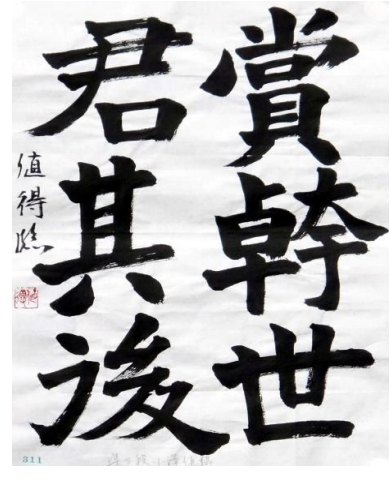 賞幹世
君其後
値得臨
311